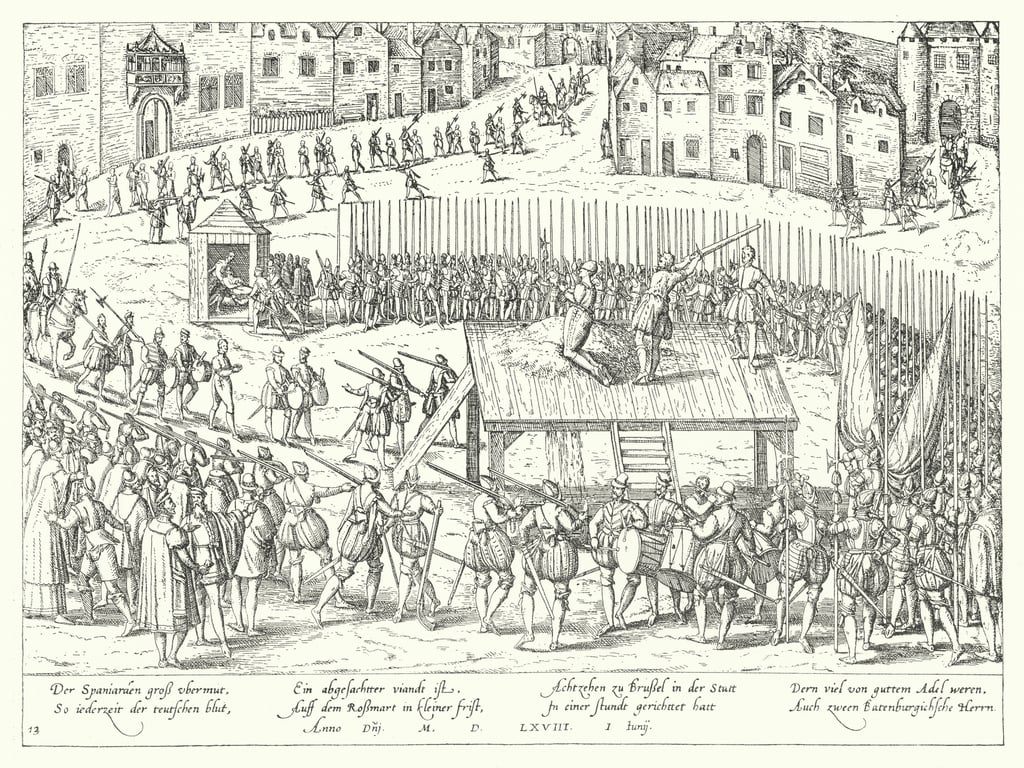 Der Spaniarden groß vbermut,
So iederzeit der teutschen blut,
Ein abgesachter viandt ist.
Auff dem Roßmart in kleiner frist,
Achtzehen zu Brußel in der Statt
In einer stundt gerichttet hatt
Dern viel von guttem Adel weren,
Auch zween Batenburgichsche Herrn.
Anno Dñj. M. D. LXVIII. I iunij.
13